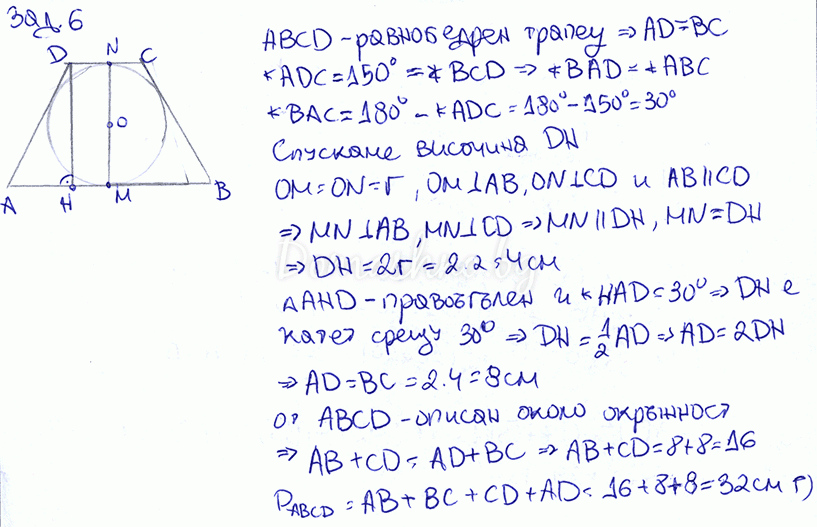 Зад.6
D N C
O
A H M B
ABCD - равнобедрен трапец ⇒ AD=BC
∢ADC=150° = ∢BCD ⇒ ∢BAD = ∢ABC
∢BAC = 180° - ∢ADC = 180° - 150° = 30°
Спускаме височина DH
OM=ON=r, OM⊥AB, ON⊥CD и AB∥CD
⇒ MN⊥AB, MN⊥CD ⇒ MN∥DH, MN=DH
⇒ DH = 2r = 2.2=4см
△AHD - правоъгълен и ∢HAD=30° ⇒ DH е
катет срещу 30° ⇒ DH = 1/2 AD ⇒ AD = 2DH
⇒ AD=BC=2.4=8см
От ABCD - описан около окръжност
⇒ AB+CD = AD+BC ⇒ AB+CD=8+8=16
P_ABCD = AB+BC+CD+AD = 16+8+8=32см г)